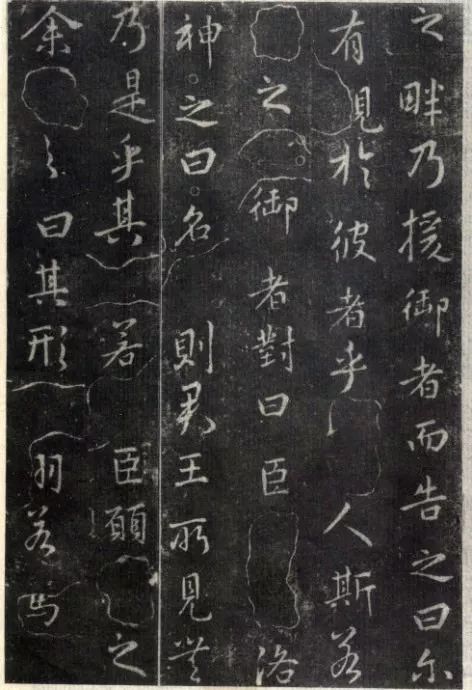 之畔乃援御者而告之曰尔
有見於彼者乎人斯若
之御者對曰臣洛
神之曰名則君王所見無
乃是乎其若臣願之
余之曰其形羽若焉